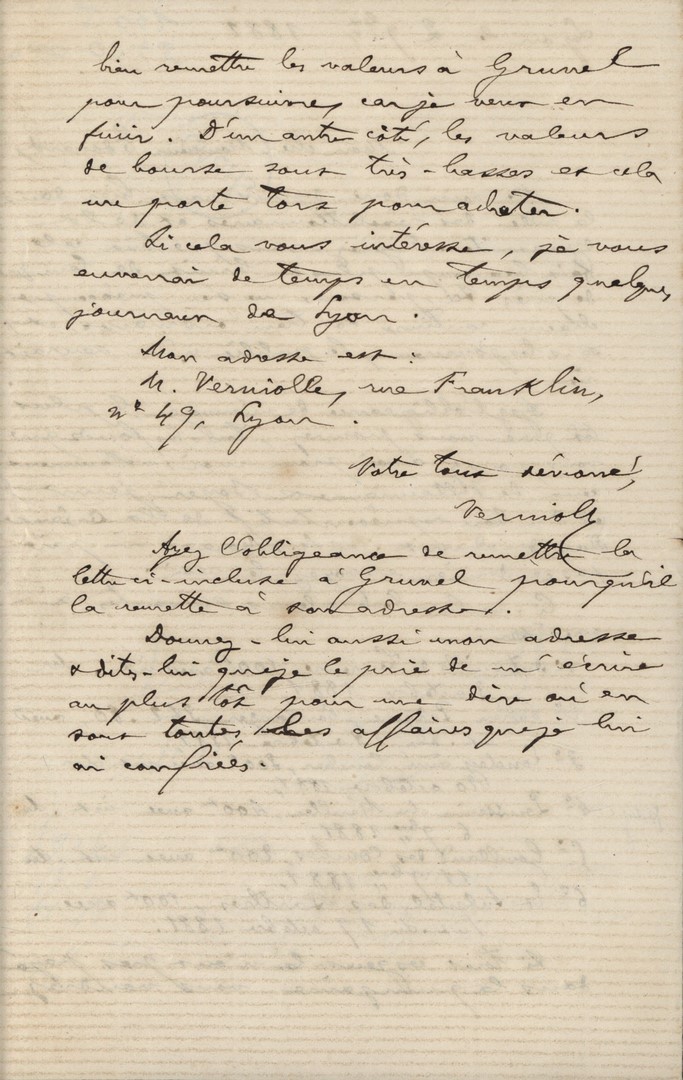 bien remettre les valeurs à Grunel
pour poursuivre, car je veux en
finir. D'un autre côté, les valeurs
de bourse sont très-basses et cela
me porte tort pour acheter.
Si cela vous intéresse, je vous
enverrai de temps en temps quelques
journaux de Lyon.
Mon adresse est :
M. Verniolle, rue Franklin,
n° 49, Lyon.
Votre tout dévoué,
Verniolle
Ayez l'obligeance de remettre la
lettre ci-incluse à Grunel pour qu'il
la remette à son adresse.
Donnez-lui aussi mon adresse
& dites-lui que je le prie de m'écrire
au plus tôt pour me dire où en
sont toutes les affaires que je lui
ai confiées.